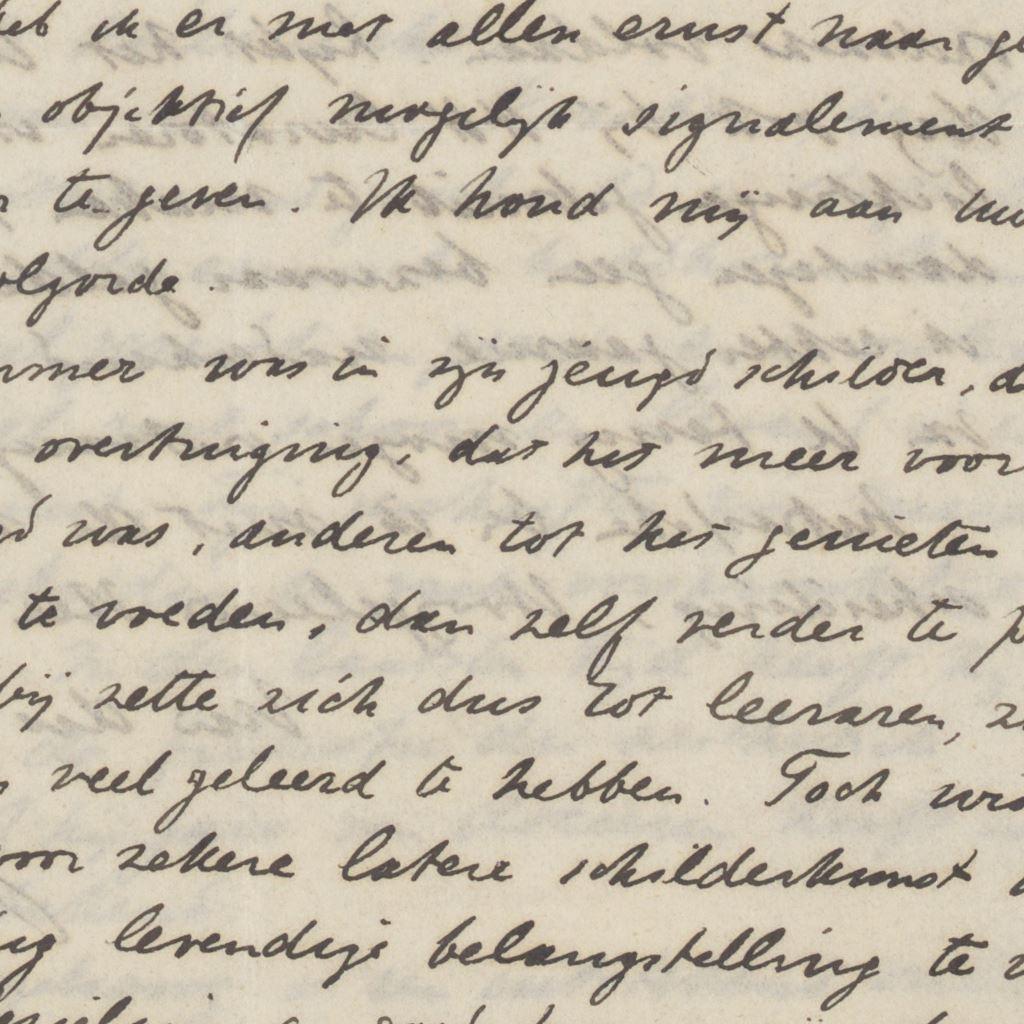 heb ik er met allen ernst naar
objektief mogelijk signalement
te geven. Ik houd mij aan uw
volgorde.
was in zijn jeugd schilder,
overtuiging, dat het meer voor
was, anderen tot het genieten
te voeden, dan zelf verder te
hij zette zich dus tot leeraren,
veel geleerd te hebben. Toch
voor zekere latere schilderkunst
levendige belangstelling te